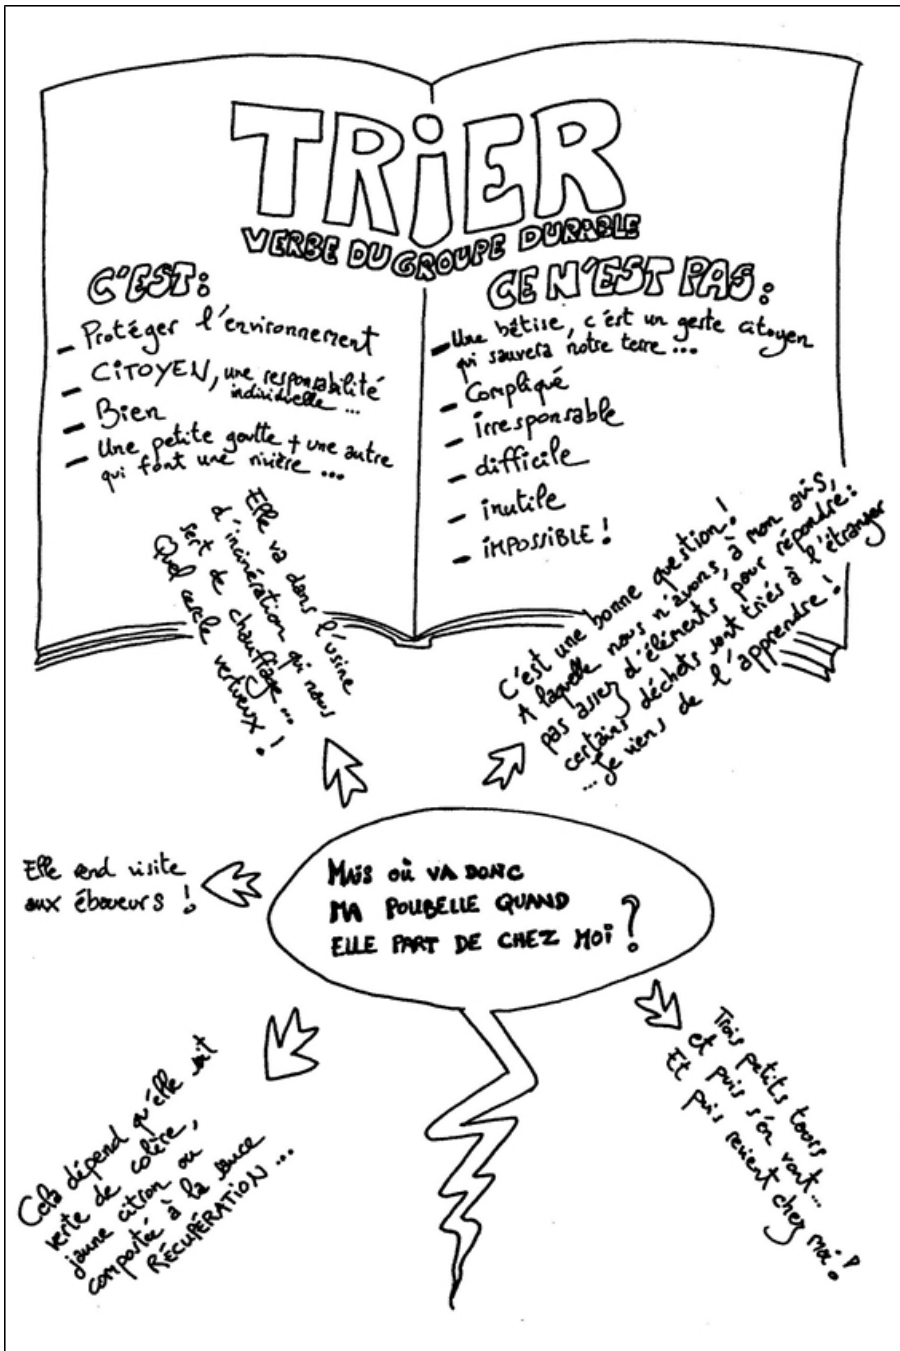 TRiER
VERBE DU GROUPE DURABLE
C'EST :
- Protéger l'environnement
- CiTOYEN, une responsabilité
individuelle ...
- Bien
- Une petite goutte + une autre
qui font une rivière ...
CE N'EST PAS :
- Une bêtise, c'est un geste citoyen
qui sauvera notre terre ...
- Compliqué
- irresponsable
- difficile
- inutile
- iMPOSSiBLE !
Elle va dans l'usine
d'incinération qui nous
sert de chauffage ...
Quel cercle vertueux !
C'est une bonne question !
A laquelle nous n'avons, à mon avis,
pas assez d'éléments pour répondre :
certains déchets sont triés à l'étranger
... Je viens de l'apprendre !
MAiS Où VA DONC
MA POUBELLE QUAND
ELLE PART DE CHEZ MOi ?
Elle rend visite
aux éboueurs !
Cela dépend qu'elle soit
verte de colère,
jaune citron ou
compostée à la sauce
RÉCUPÉRATiON ...
Trois petits tours
et puis s'en vont ...
Et puis revient chez moi !